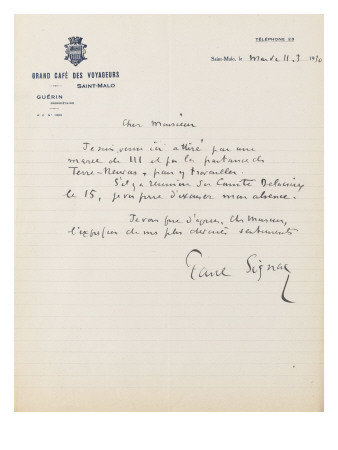 TÉLÉPHONE 23
GRAND CAFÉ DES VOYAGEURS
SAINT-MALO
Saint-Malo, le 11
GUÉRIN
PROPRIÉTAIRE
Cher Monsieur
Je suis venu ici attiré par une
marée de et par la partance des
Terre-Neuvas, pour y travailler.
S'il y a réunion du Comité Delacroix
le 15, je vous prie d'excuser mon absence.
Je vous prie d'agréer, cher Monsieur,
l'expression de mes plus dévoués sentiments
Paul Signac